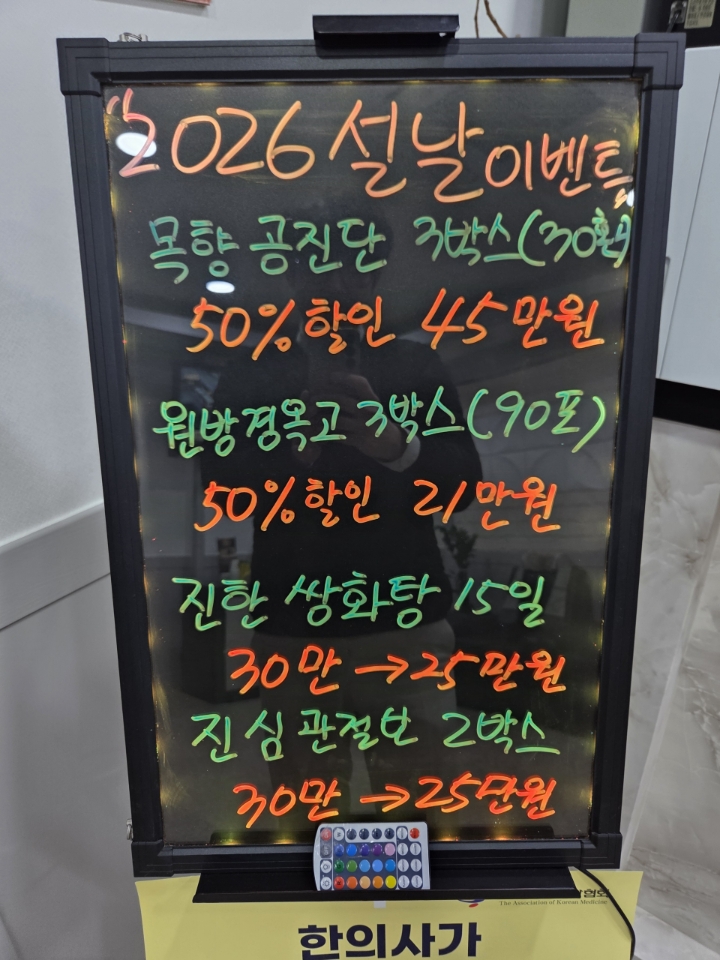 "2026 설날 이벤트"
목향 공진단 3박스(30환)
50% 할인 45만원
원방경옥고 3박스(90포)
50% 할인 21만원
진한 쌍화탕 15일
30만 → 25만원
진심 관절보 2박스
30만 → 25만원
The Association of Korean Medicine
한의사가